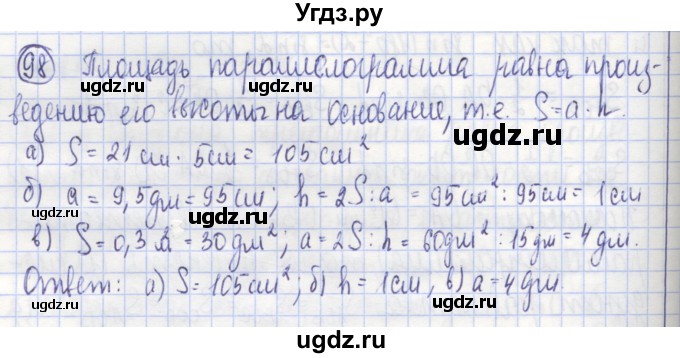 Угдз.ру
98 Площадь параллелограмма равна произ-
ведению его высоты на основание, т.е. S=a·h.
а) S = 21 см · 5см = 105 см²
б) a = 9,5дм = 95 см; h = 2S : a = 95 см² : 95 см = 1 см
в) S = 0,3 = 30 дм²; a = 2S : h = 60дм² : 15 дм = 4 дм.
Ответ: а) S = 105 см²; б) h = 1см, в) a = 4 дм.
ugdz.ru
ugdz.ru
ugdz.ru
ugdz.ru
ugdz.ru
ugdz.ru
ugdz.ru
ugdz.ru
ugdz.ru